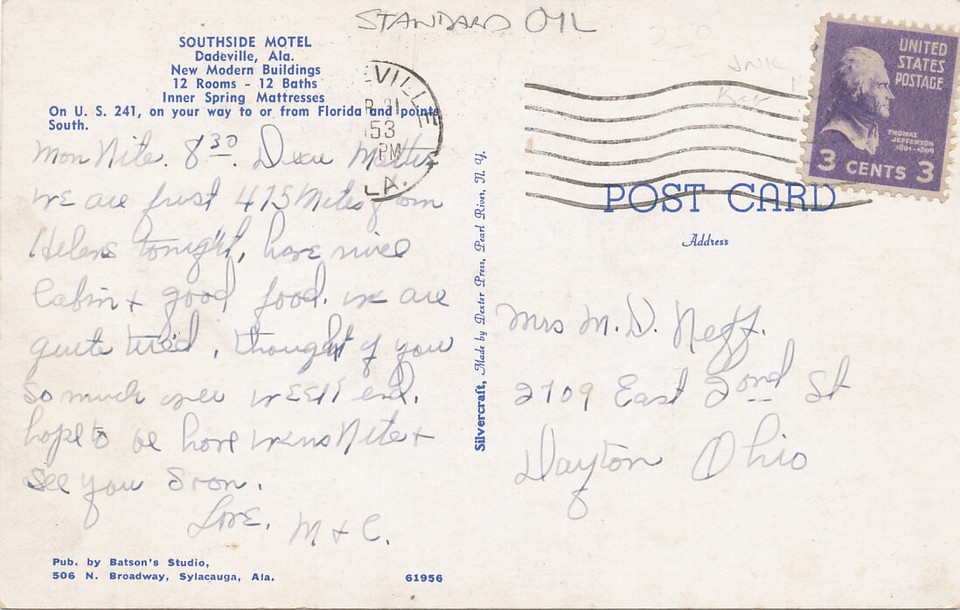 STANDARD OIL
SOUTHSIDE MOTEL
Dadeville, Ala.
New Modern Buildings
12 Rooms - 12 Baths
Inner Spring Mattresses
On U. S. 241, on your way to or from Florida and points
South.
EVILLE
21
1953
PM
LA.
Mon Nite. 8 30. Dear
we are just 475 Miles from
Helens tonight, have nice
Cabin & good food. we are
quite tired, thought of you
so much over week end.
hope to be home Wens Nite &
see you soon.
Love, M & C.
Pub. by Batson's Studio,
506 N. Broadway, Sylacauga, Ala.
61956
Silvercraft, Made by Dexter Press, Pearl River, N. Y.
UNITED
STATES
POSTAGE
THOMAS
JEFFERSON
1801-1809
3 CENTS 3
POST CARD
Address
Mrs M. D. Neff.
2709 East 2ond St
Dayton Ohio